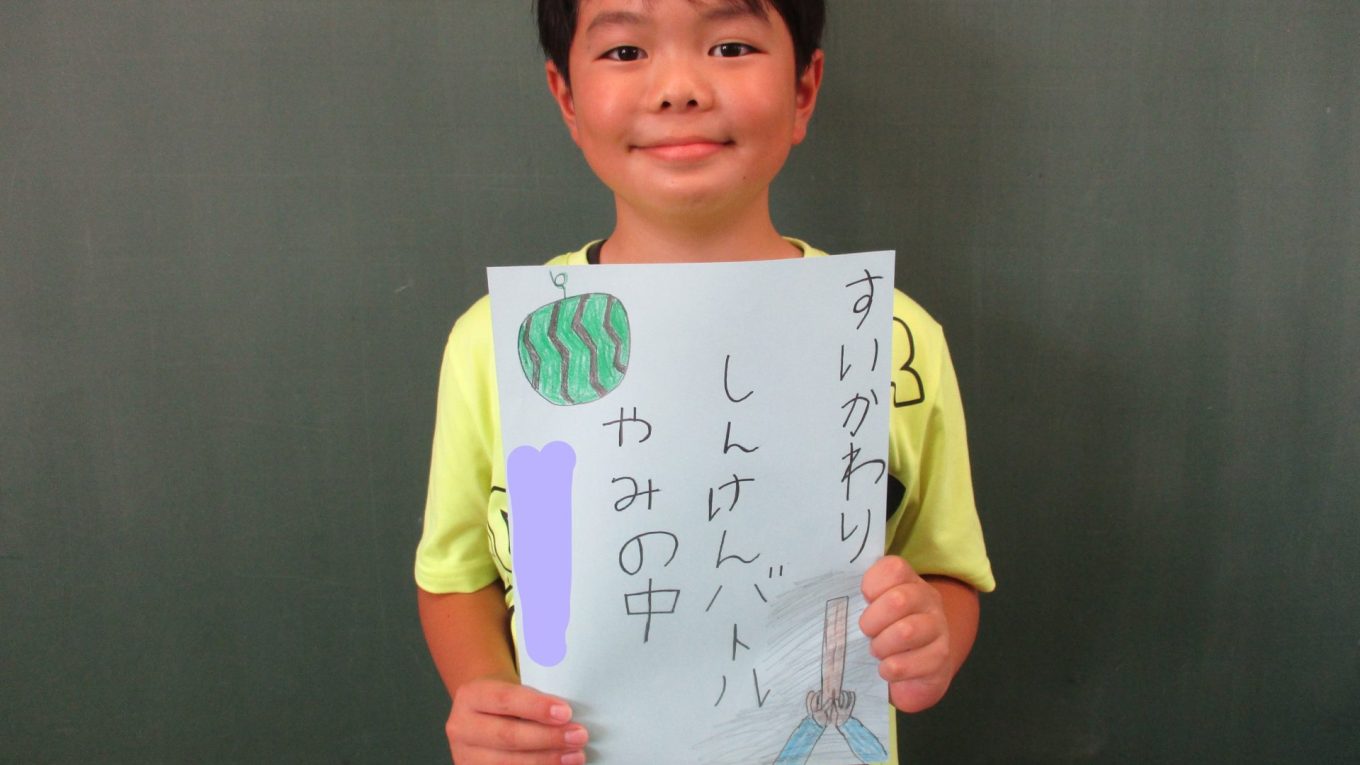 すいかわり
しんけんバトル
やみの中